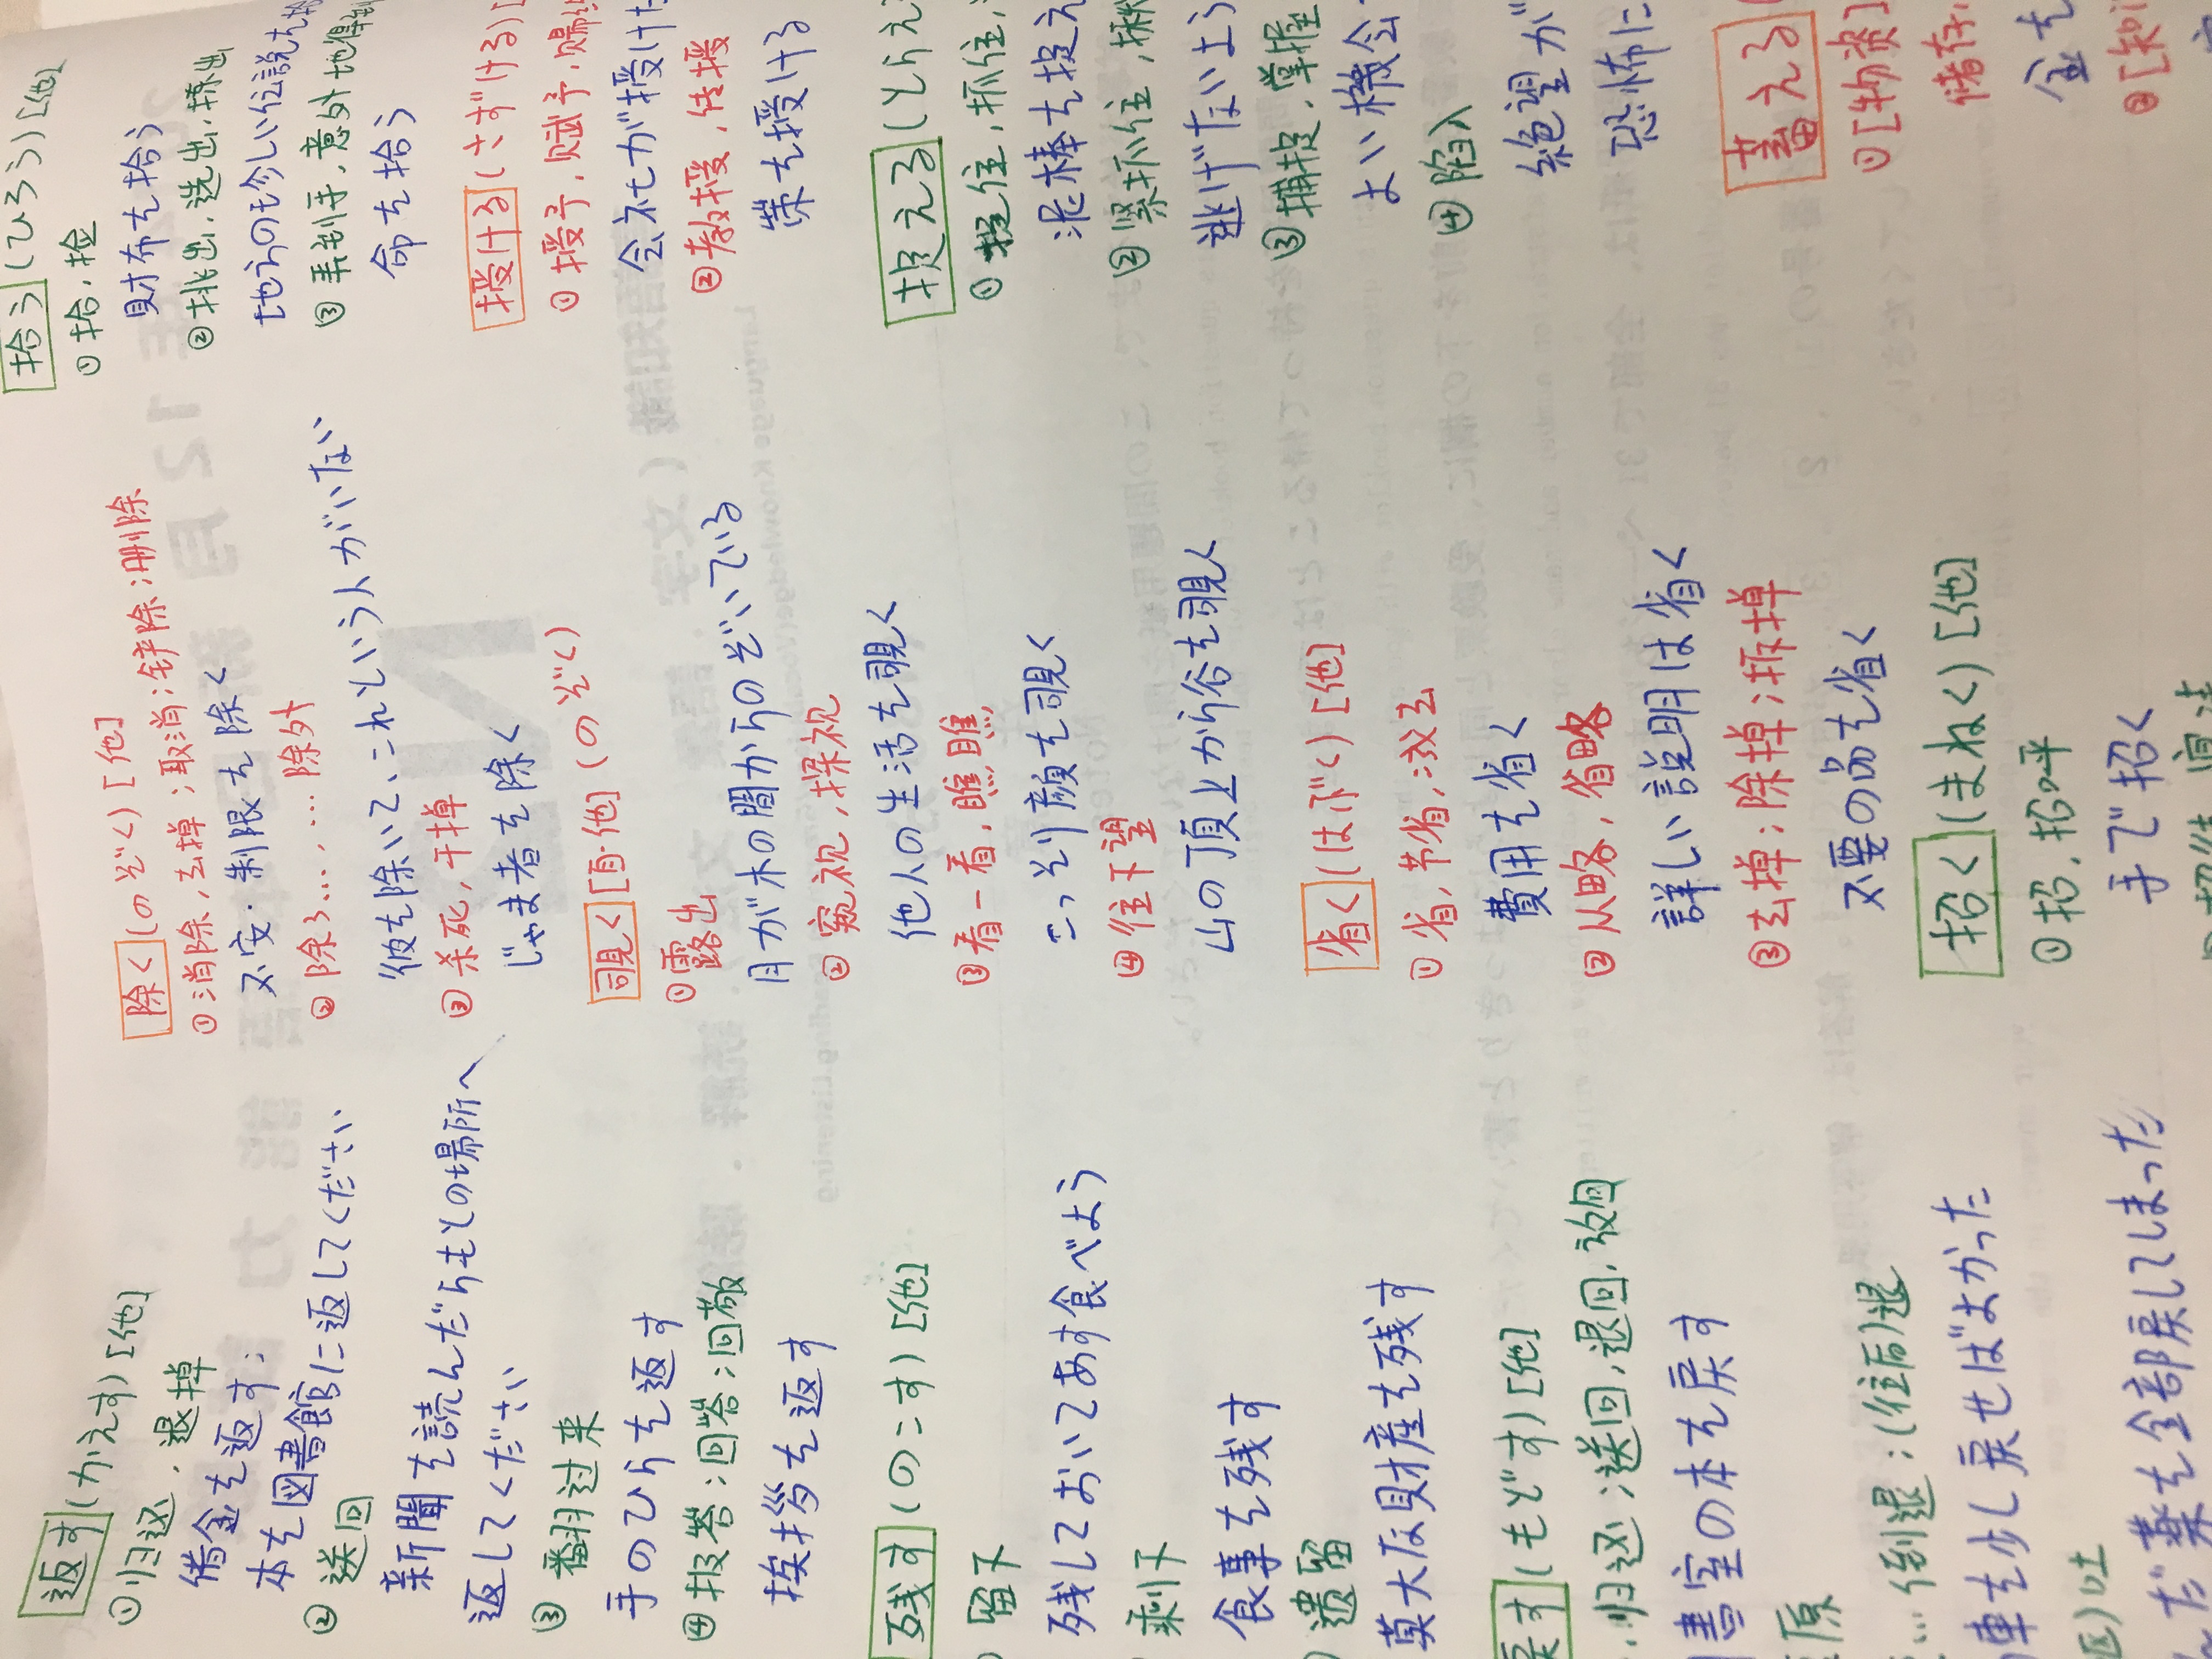 返す (かえす) [他]
①归还，退掉
借金を返す:
本を図書館に返してください
② 送回
新聞を読んだらもとの場所へ
返してください
③ 翻过来
手のひらを返す
④ 报答；回答；回敬
挨拶を返す
残す (のこす) [他]
留下
残しておいてあす食べよう
剩下
食事を残す
遗留
莫大な財産を残す
戻す (もどす) [他]
归还；送回，退回，放回
書室の本を戻す
原
… 倒退；(往后)退
車を少し戻せばよかった
吐
だ薬を全部戻してしまった
除く (のぞく) [他]
①消除，去掉；取消；铲除；删除
不安・制限を除く
② 除了…，… 除外
彼を除いて、これという人がいない
③ 杀死，干掉
じゃま者を除く
覗く [自・他] (のぞく)
① 露出
月が木の間からのぞいている
② 窥视，探视
他人の生活を覗く
③看一看，瞧瞧
こっそり顔を覗く
④ 往下望
山の頂上から谷を覗く
省く (はぶく) [他]
① 省，节省，减去
費用を省く
② 从略，省略
詳しい説明は省く
③ 去掉；除掉；拆掉
不要の品を省く
招く (まねく) [他]
① 招，招呼
手で招く
拾う (ひろう) [他]
① 拾，捡
財布を拾う
②挑出，选出，择出
地方の珍しい伝説を拾
③ 弄到手，意外地得到
命を拾う
授ける (さずける) [
① 授予，赋予，赐给
会社が授けた
②教授，传授
業を授ける
捉える (とらえ
① 捉住，抓住，
泥棒を捉え
② 紧抓住，揪
逃げないよう
③ 捕捉，掌握
よい機会
④ 陷入
絶望が
恐怖に
蓄える
①[物资]
储存
金を
②[知